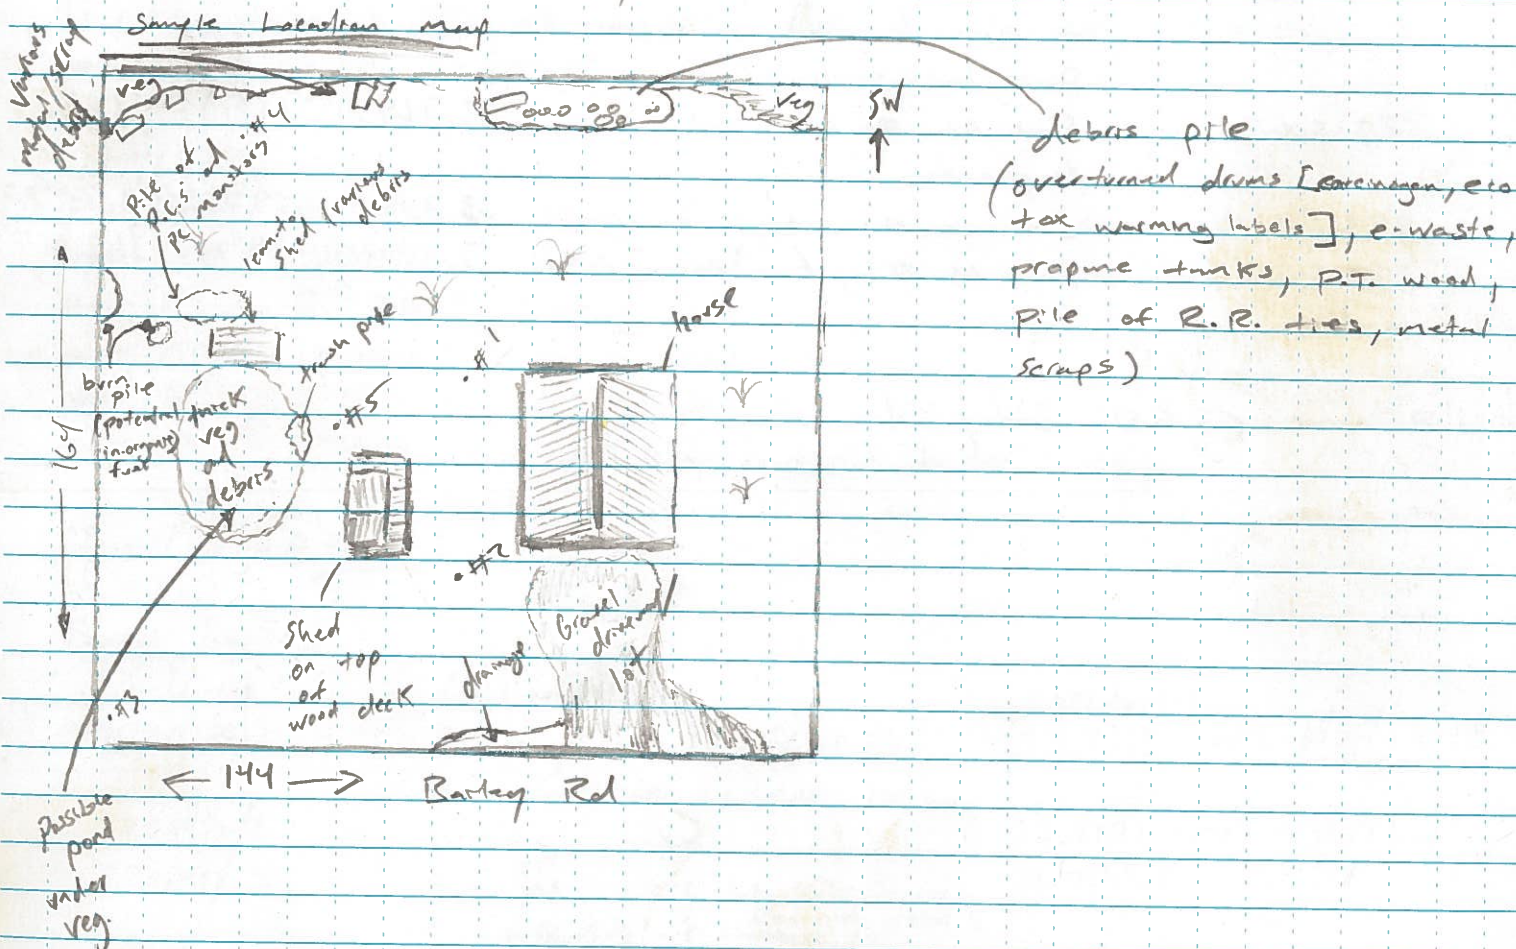 Sample Location Map
various
metal/scrap
debris
veg
veg
SW
debris pile
(overturned drums [carcinogen, eco
tox warning labels], e-waste,
propane tanks, P.T. wood,
pile of R.R. ties, metal
scraps)
#4
Pile of
P.C.s and
PC monitors
leanto
shed (various
debris
house
trash pile
#1
#5
burn
pile
(potential
inorganic
fuel
thick
veg
and
debris
164
#2
Gravel
driveway
lot
drainage
Shed
on top
of
wood deck
#3
144
Barley Rd
Possible
pond
under
veg.